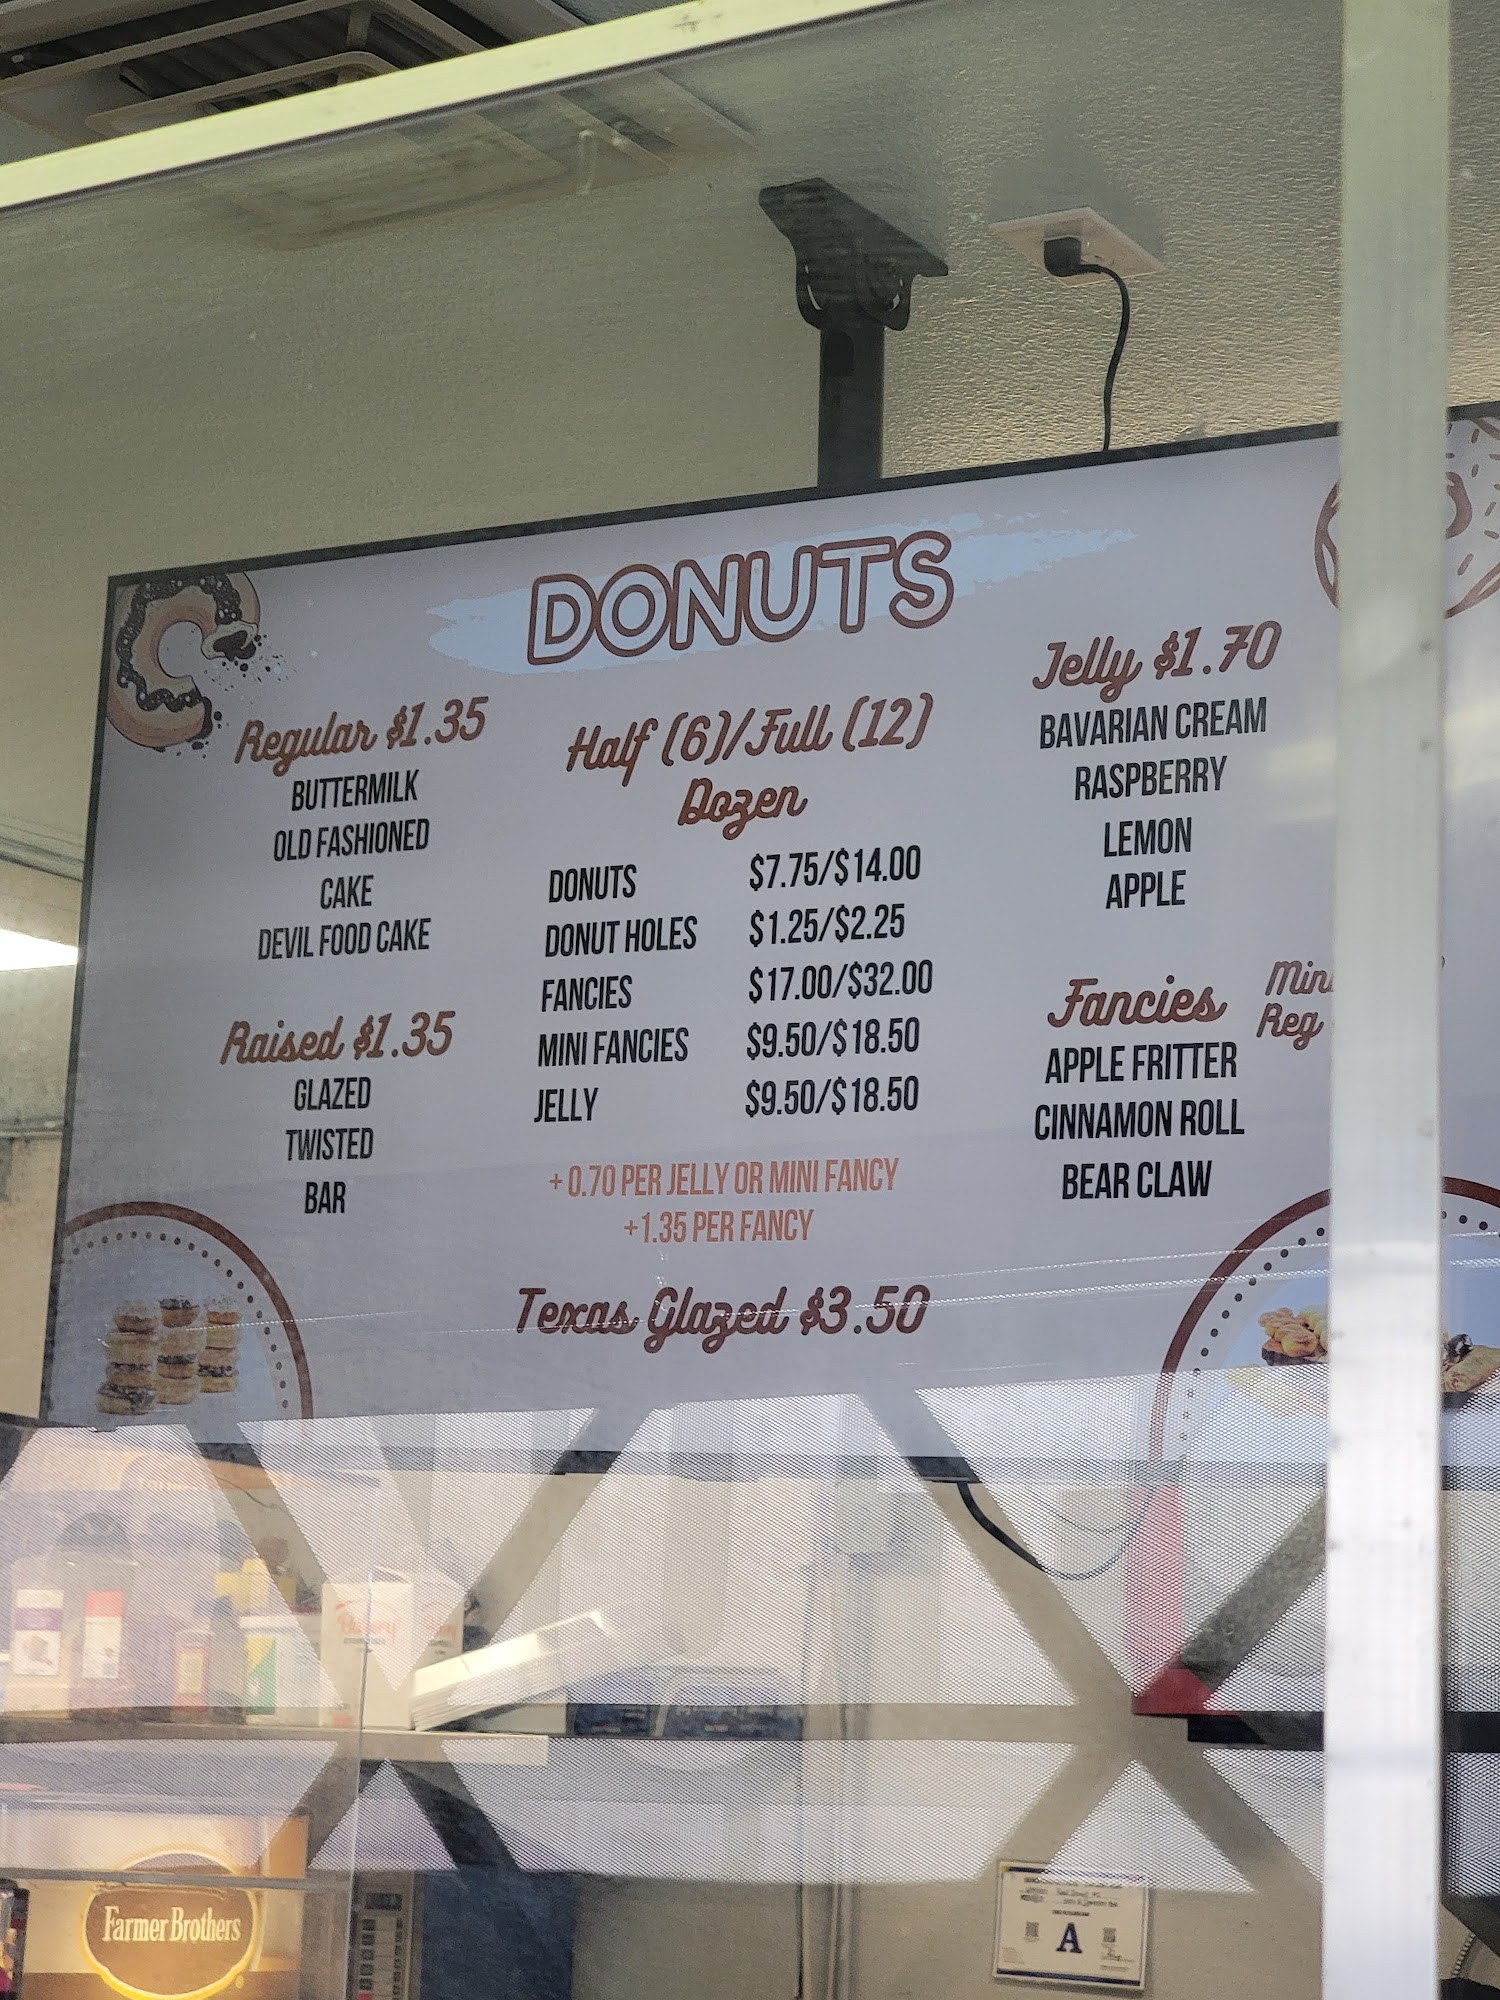 DONUTS
Regular $1.35
BUTTERMILK
OLD FASHIONED
CAKE
DEVIL FOOD CAKE
Raised $1.35
GLAZED
TWISTED
BAR
Half (6)/Full (12)
Dozen
DONUTS $7.75/$14.00
DONUT HOLES $1.25/$2.25
FANCIES $17.00/$32.00
MINI FANCIES $9.50/$18.50
JELLY $9.50/$18.50
+ 0.70 PER JELLY OR MINI FANCY
+1.35 PER FANCY
Texas Glazed $3.50
Jelly $1.70
BAVARIAN CREAM
RASPBERRY
LEMON
APPLE
Fancies
Reg
APPLE FRITTER
CINNAMON ROLL
BEAR CLAW
Farmer Brothers
A